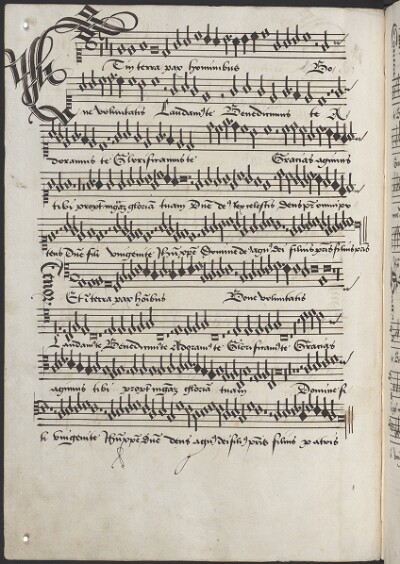 Et in terra pax hominibus Bo
ne voluntatis Laudamꝰ te Benedicimus te A
doramus te Glorificamus te Gracias agimus
tibi propt͛ magnā gloriā tuam Dn̄e deꝰ rex celestis deus pr̄ omnipo
tens Dn̄e fili unigenite Domine deꝰ agnꝰ dei filius pr̄is filius pr̄is
Tenor
Et ī terra pax hōibus Bone voluntatis
Laudamꝰ te Benedicimꝰ te Adoramꝰ te Glorificamꝰ te Gracias
agimus tibi propt͛ magnā gloriā tuam Domine fi
li unigenite Dn̄e deus agnꝰ dei filiꝰ pr̄is filius patris